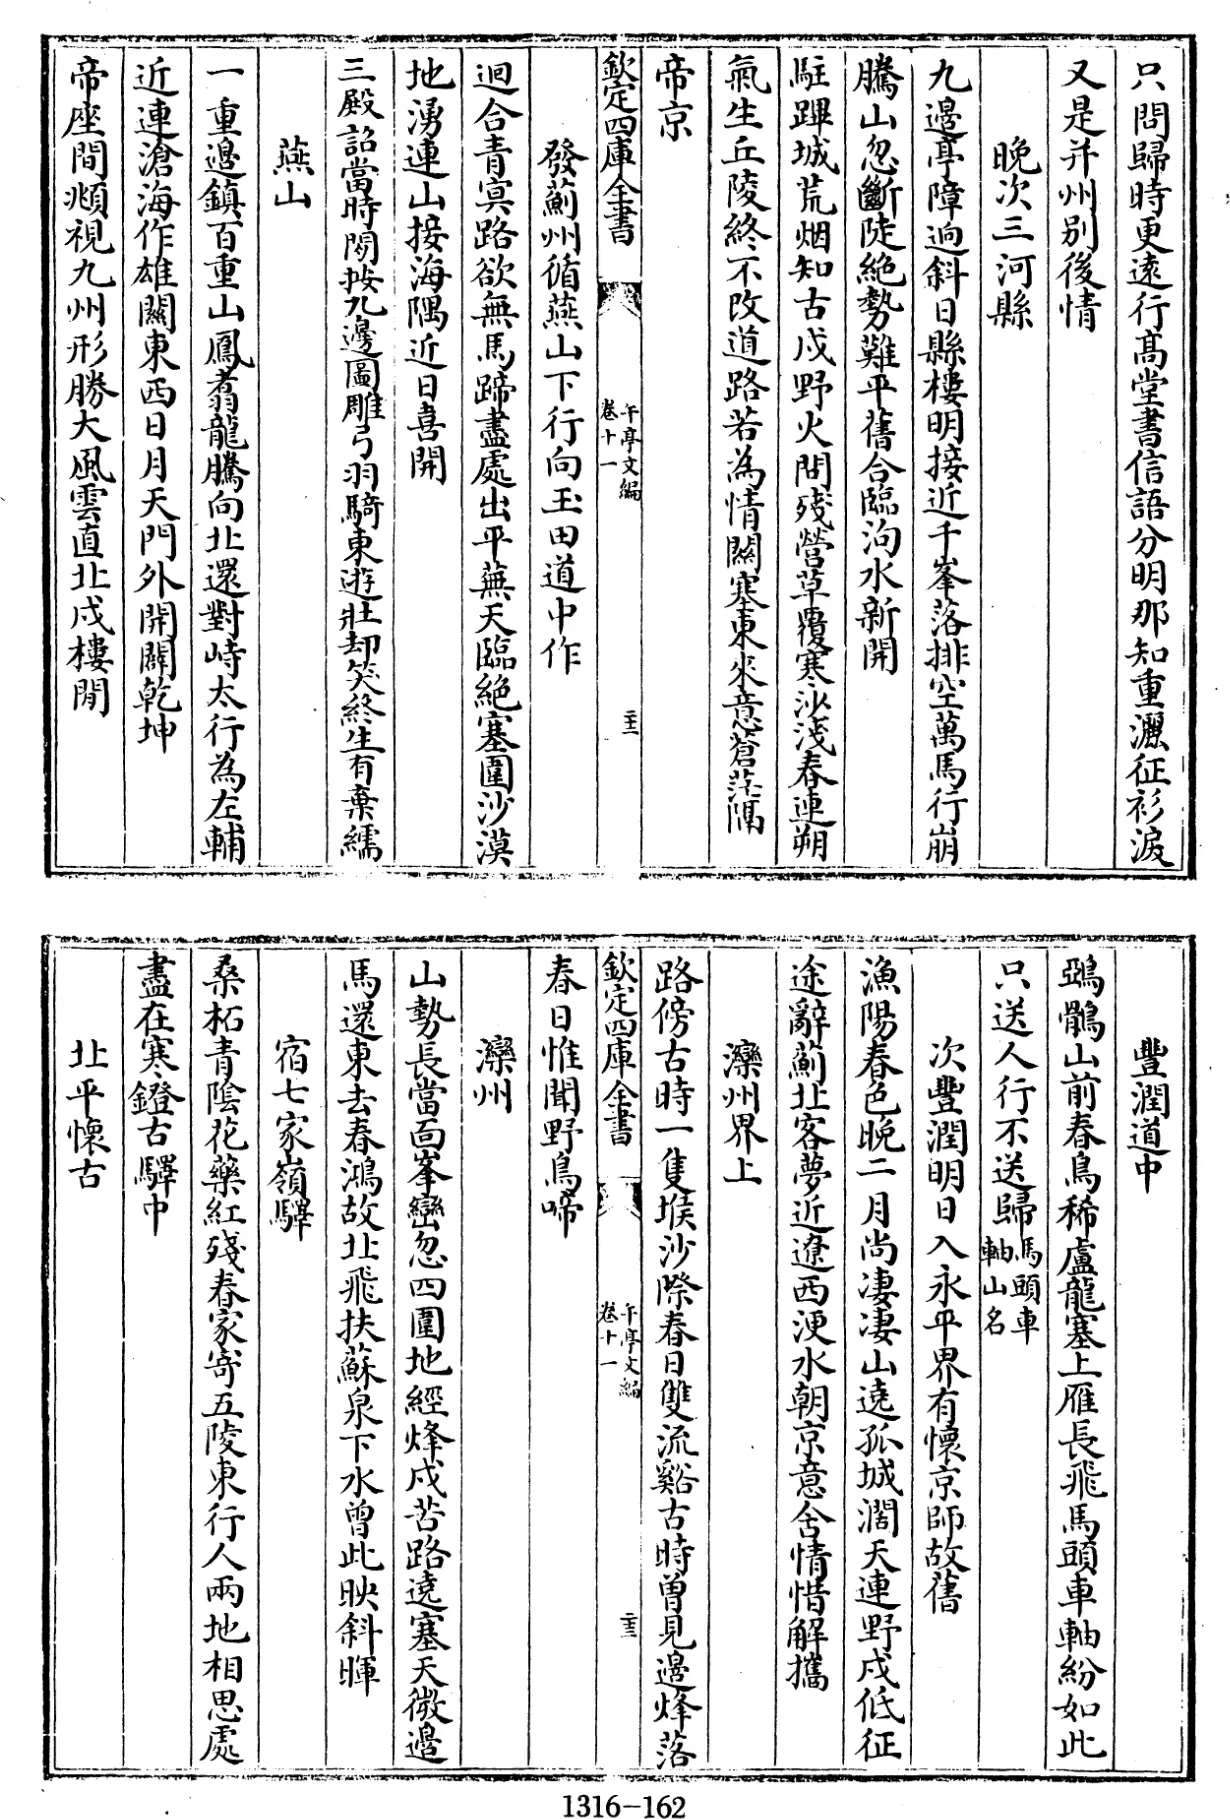 只問歸時更遠行高堂書信語分明那知重灑征衫淚
又是并州別後情
晚次三河縣
九邊亭障逈斜日縣樓明接近千峯落排空萬馬行崩
騰山忽斷陡絶勢難平舊合臨泃水新開
駐蹕城荒烟知古戍野火問殘營草覆寒沙淺春連朔
氣生丘陵終不改道路若為情關塞東來意蒼茫隔
帝京
欽定四庫全書
午亭文編
卷十一
二十二
發薊州循燕山下行向玉田道中作
迴合青冥路欲無馬蹄盡處出平蕪天臨絶塞圍沙漠
地湧連山接海隅近日喜開
三殿詔當時閒按九邊圖雕弓羽騎東遊壯却笑終生有棄繻
燕山
一重邊鎮百重山鳳翥龍騰向北還對峙太行為左輔
近連滄海作雄關東西日月天門外開闢乾坤
帝座間兆頫視九州形勝大風雲直北戍樓閒
豐潤道中
鵶鶻山前春鳥稀盧龍塞上雁長飛馬頭車軸紛如此
只送人行不送歸馬頭車軸山名
次豐潤明日入永平界有懷京師故舊
漁陽春色晚二月尚凄凄山遶孤城濶天連野戍低征
途辭薊北客夢近遼西浭水朝京意含情惜解攜
灤州界上
路傍古時一隻堠沙際春日雙流谿古時曽見邊烽落
欽定四庫全書
午亭文編
卷十一
二十三
春日惟聞野鳥啼
灤州
山勢長當面峯巒忽四圍地經烽戍苦路遶塞天微邊
馬還東去春鴻故北飛扶蘇泉下水曾此映斜暉
宿七家嶺驛
桑柘青陰花藥紅殘春家寄五陵東行人兩地相思處
盡在寒鐙古驛中
北平懷古
1316-162